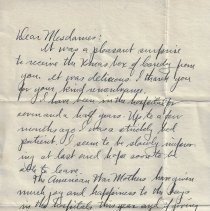 Dear Mesdames:
It was a pleasant surprise
to receive the Xmas box of candy from
you. It was delicious. I thank you
for your kind remembrance.
I have been in the hospital for
one and a half years. Up to a few
months ago I was a strictly bed
patient. I seem to be slowly improv-
ing at last and hope soon to be
able to leave.
The American War Mothers have given
much joy and happiness to the boys
in the Hospitals this year and if giving